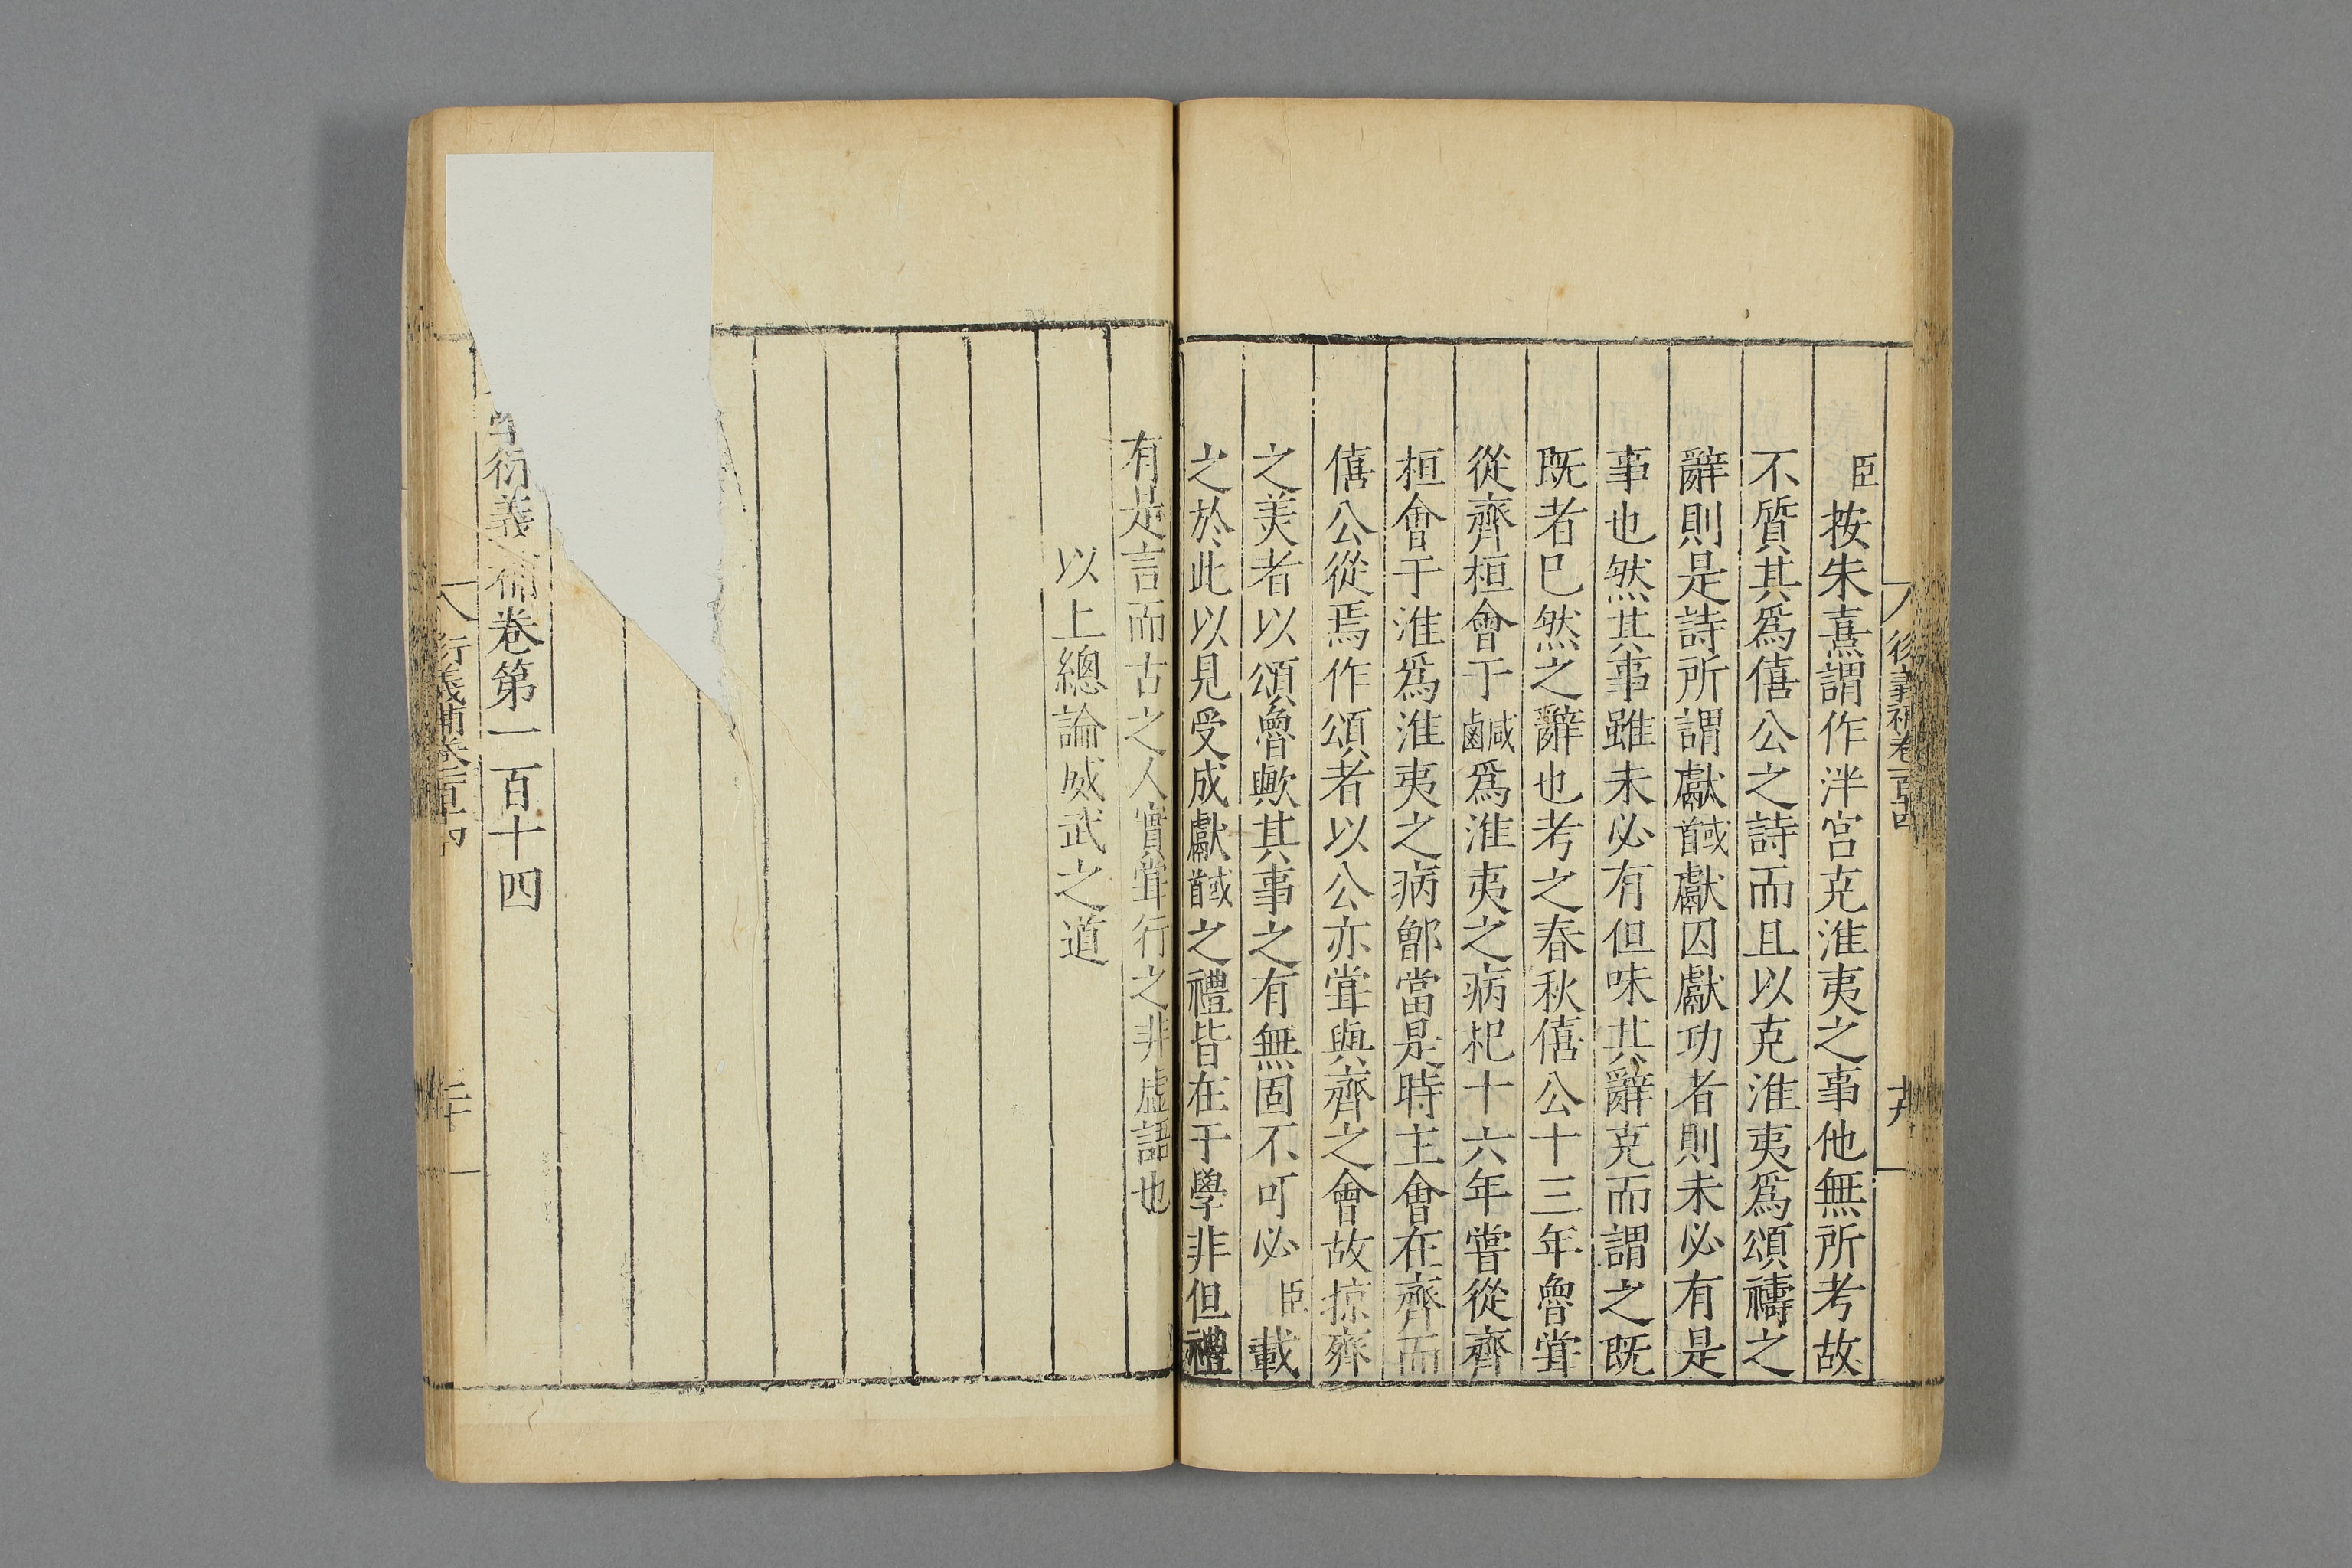 臣按朱熹謂作泮宮克淮夷之事他無所考故
不質其爲僖公之詩而且以克淮夷爲頌禱之
辭則是詩所謂獻馘獻囚獻功者則未必有是
事也然其事雖未必有但味其辭克而謂之既
既者已然之辭也考之春秋僖公十三年魯甞
從齊桓會于鹹爲淮夷之病杞十六年嘗從齊
桓會于淮爲淮夷之病鄫當是時主會在齊而
僖公從焉作頌者以公亦甞與齊之會故掠齊
之美者以頌魯歟其事之有無固不可必臣載
之於此以見受成獻馘之禮皆在于學非但禮
有是言而古之人實甞行之非虛語也
以上總論威武之道
學衍義補卷第一百十四
衍義補卷一百十四
二十